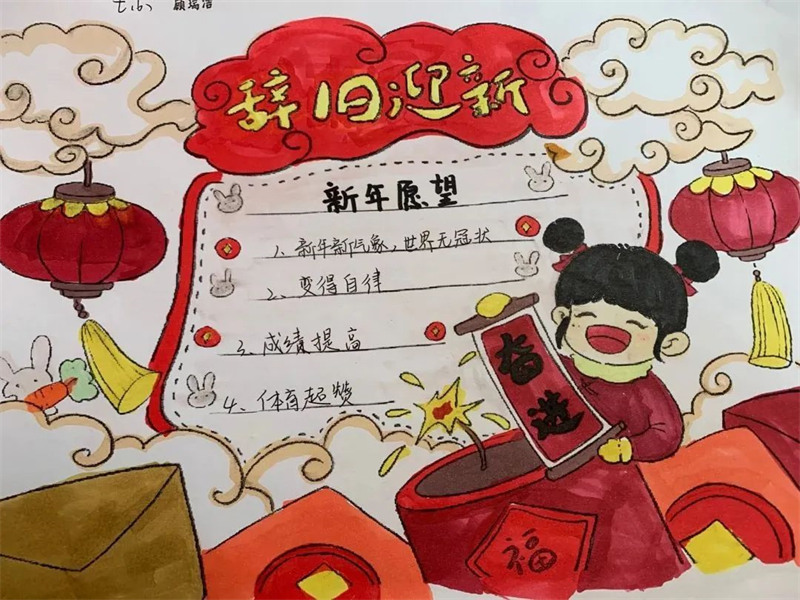 七(6) 顾瑞洁
辞旧迎新
新年愿望
1、新年新气象，世界无冠状
2、变得自律
3、成绩提高
4、体育超赞
奋进
福